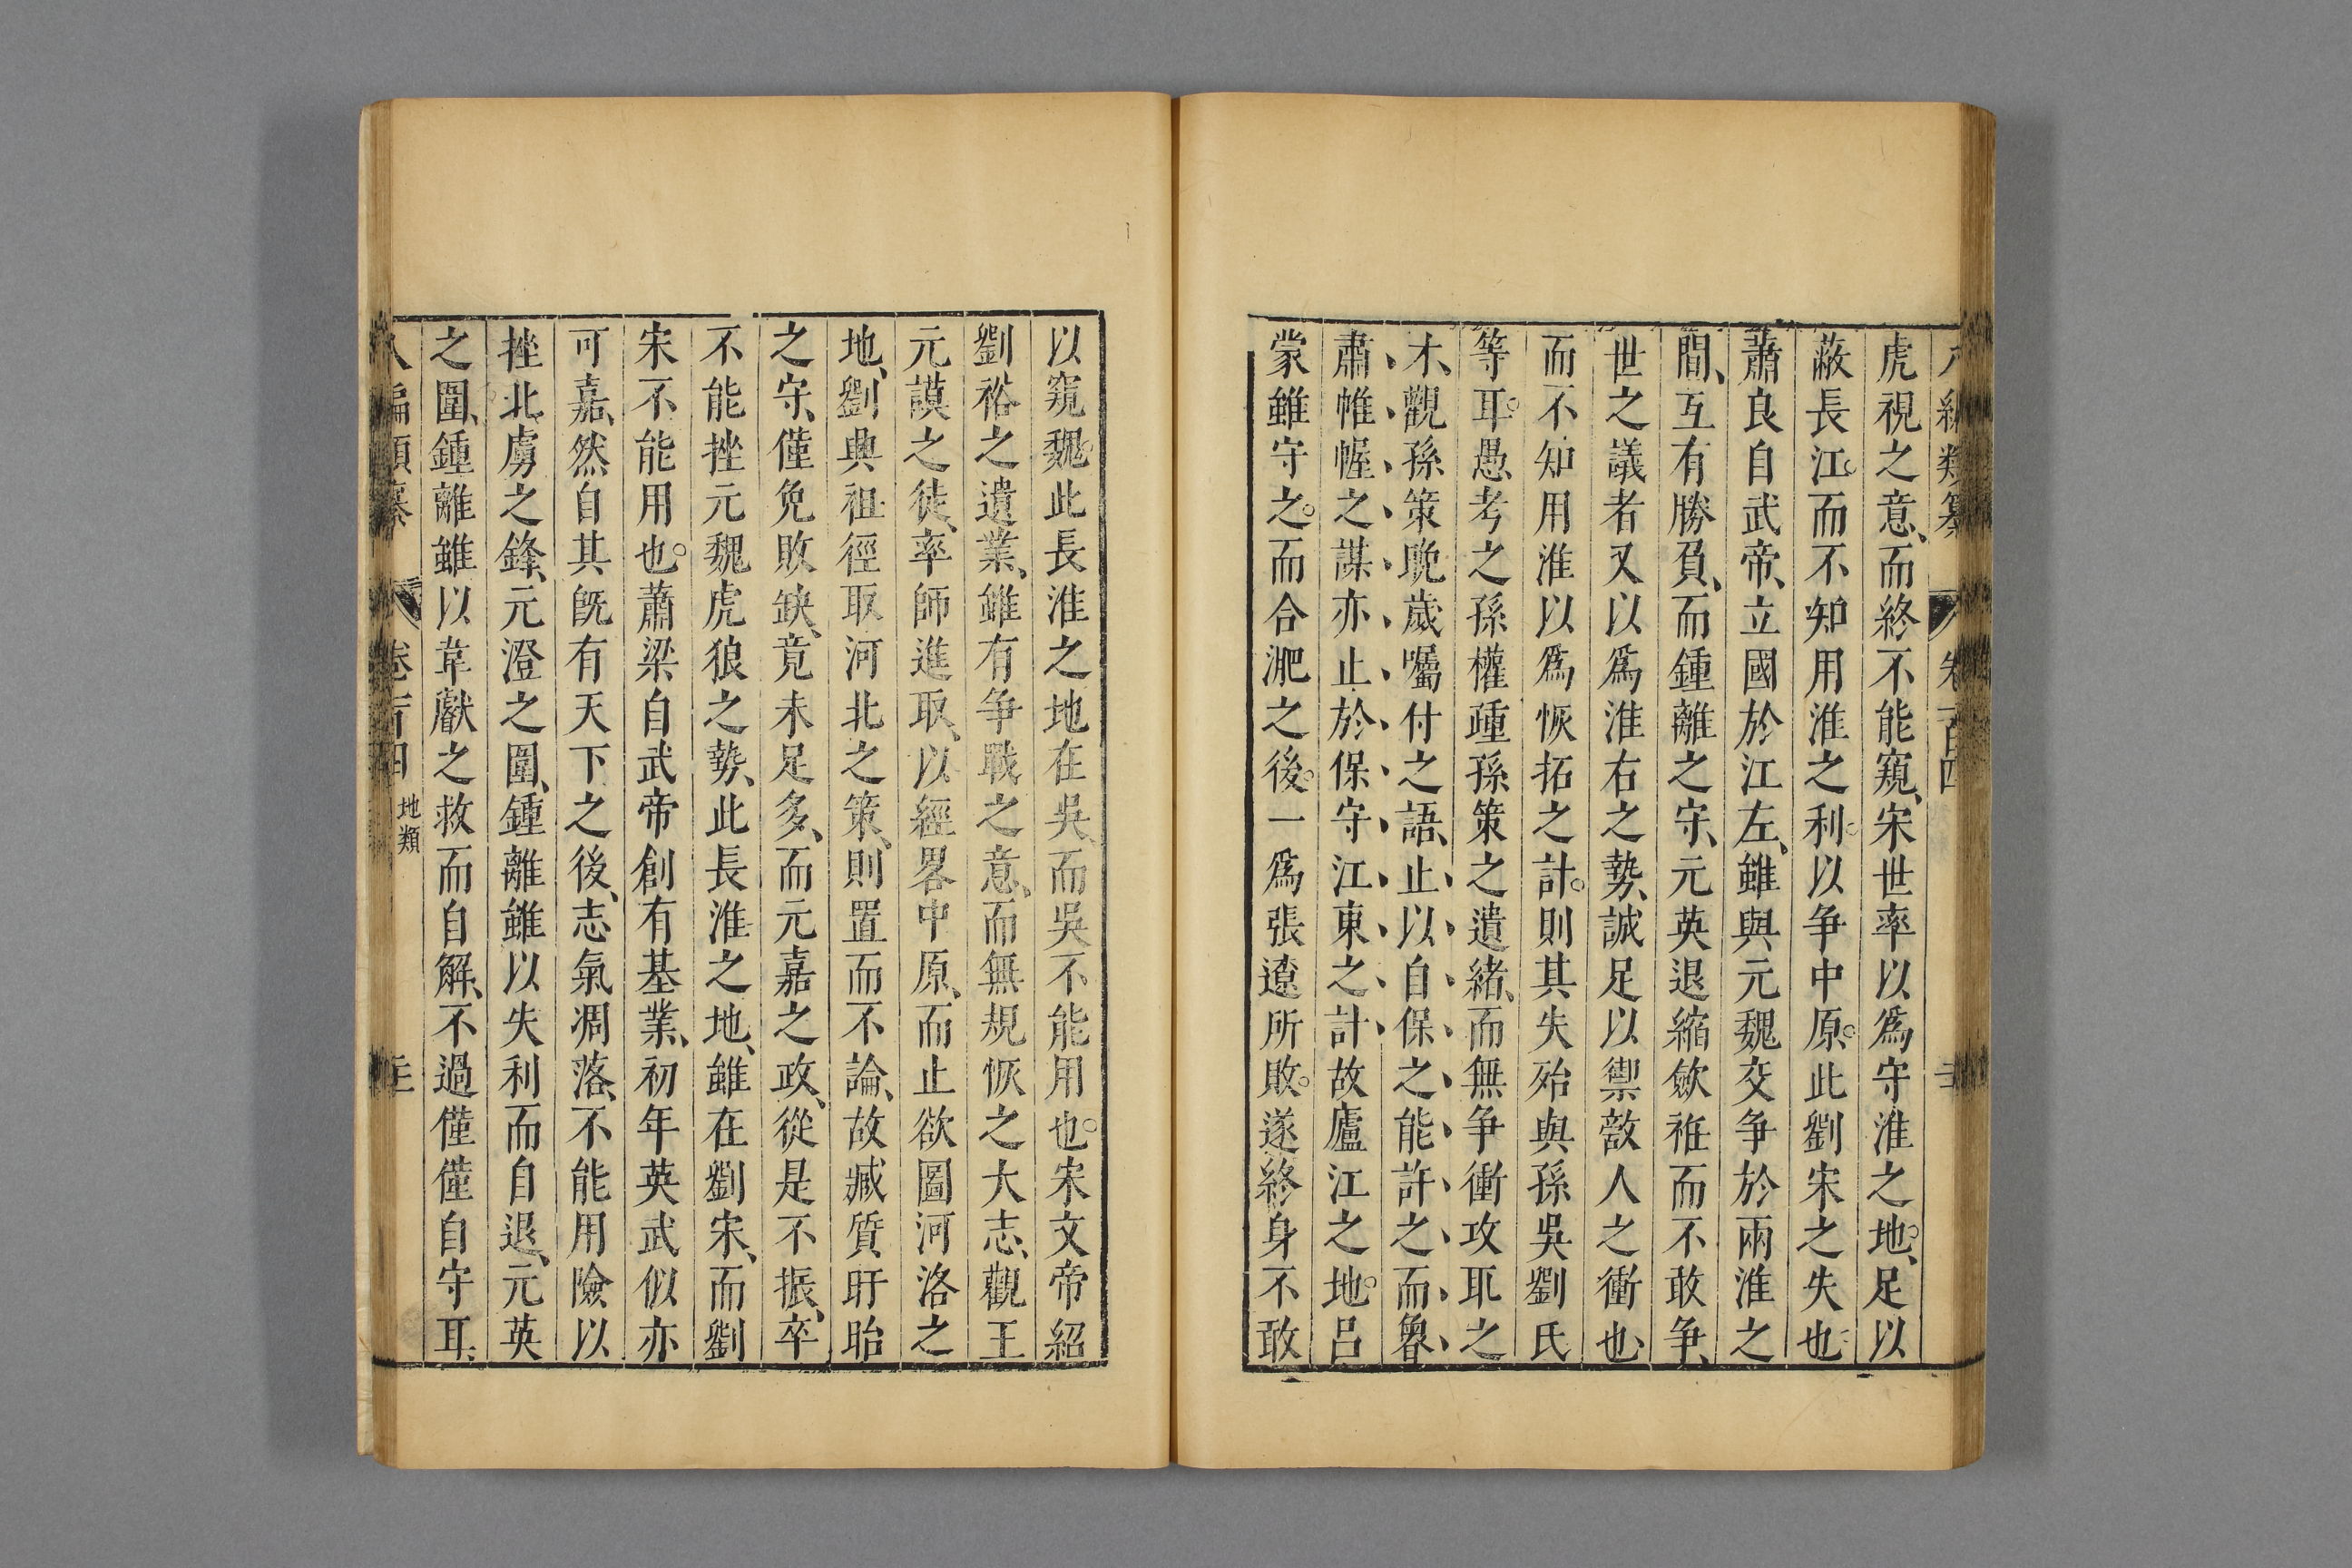 八編類纂 卷一百四 二
虎視之意、而終不能窺、宋世率以爲守淮之地、足以
蔽長江。而不知用淮之利。以争中原。此劉宋之失也
蕭良自武帝、立國於江左、雖與元魏交争於兩淮之
間、互有勝負、而鍾離之守、元英退縮歛袵而不敢争、
世之議者又以爲淮右之勢、誠足以禦敵人之衝也、
而不知用淮以爲恢拓之計。則其失殆與孫吳劉氏
等耳。愚考之孫權踵孫策之遺緒、而無争衝攻取之
木、觀孫策晩歲囑付之語、止以自保之能許之、而魯
肅帷幄之謀亦止於保守江東之計故廬江之地。吕
蒙雖守之。而合淝之後。一爲張遼所敗。遂終身不敢
以窺魏。此長淮之地在吳、而吳不能用也。宋文帝紹
劉裕之遺業、雖有争戰之意、而無規恢之大志、觀王
元謨之徒、率師進取、以經畧中原、而止欲圖河洛之
地、劉興祖徑取河北之策、則置而不論、故臧質盱眙
之守、僅免敗缺、竟未足多、而元嘉之政、從是不振、卒
不能挫元魏虎狼之勢、此長淮之地、雖在劉宋、而劉
宋不能用也。蕭梁自武帝創有基業、初年英武似亦
可嘉、然自其旣有天下之後、志氣凋落、不能用險以
挫北虜之鋒、元澄之圍、鍾離雖以失利而自退、元英
之圍、鍾離雖以韋獻之救而自解、不過僅僅自守耳、
八編類纂 卷一百四 地類 三